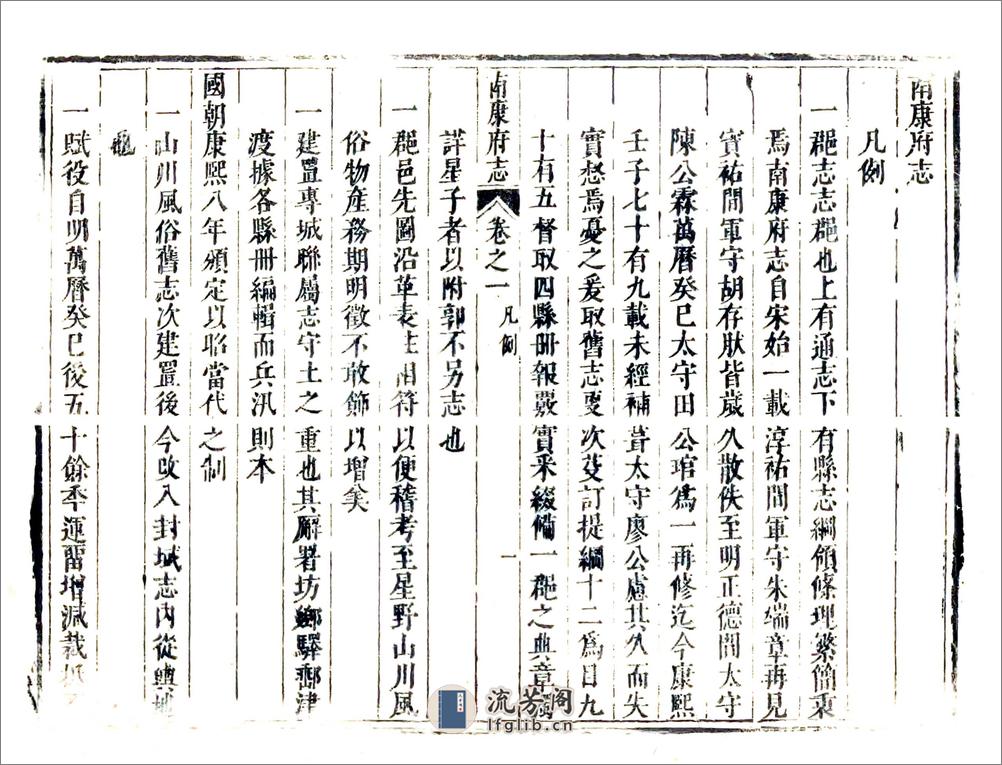 南康府志
凡例
一郡志志郡也上有通志下有縣志綱領條理繁簡秉
焉南康府志自宋始一載淳祐間軍守朱端章再見
寶祐間軍守胡存肰皆歲久散佚至明正德間太守
陳公霖萬曆癸巳太守田公琯為一再修迄今康熙
壬子七十有九載未經補葺太守廖公慮其久而失
實愁焉憂之爰取舊志更次芟訂提綱十二為目九
十有五督取四縣冊報覈實采綴備一郡之典章獨
南康府志
卷之一
凡例
一
詳星子者以附郭不另志也
一郡邑先圖沿革表註相符以便稽考至星野山川風
俗物產務期明徵不敢飾以增矣
一建置專城聯屬志守土之重也其廨署坊鄉驛郵津
渡據各縣冊編輯而兵汛則本
國朝康熙八年頒定以昭當代之制
一山川風俗舊志次建置後今改入封域志內從輿地
也
一賦役自明萬曆癸巳後五十餘年運留增減裁
流芳阁
lfglib.cn